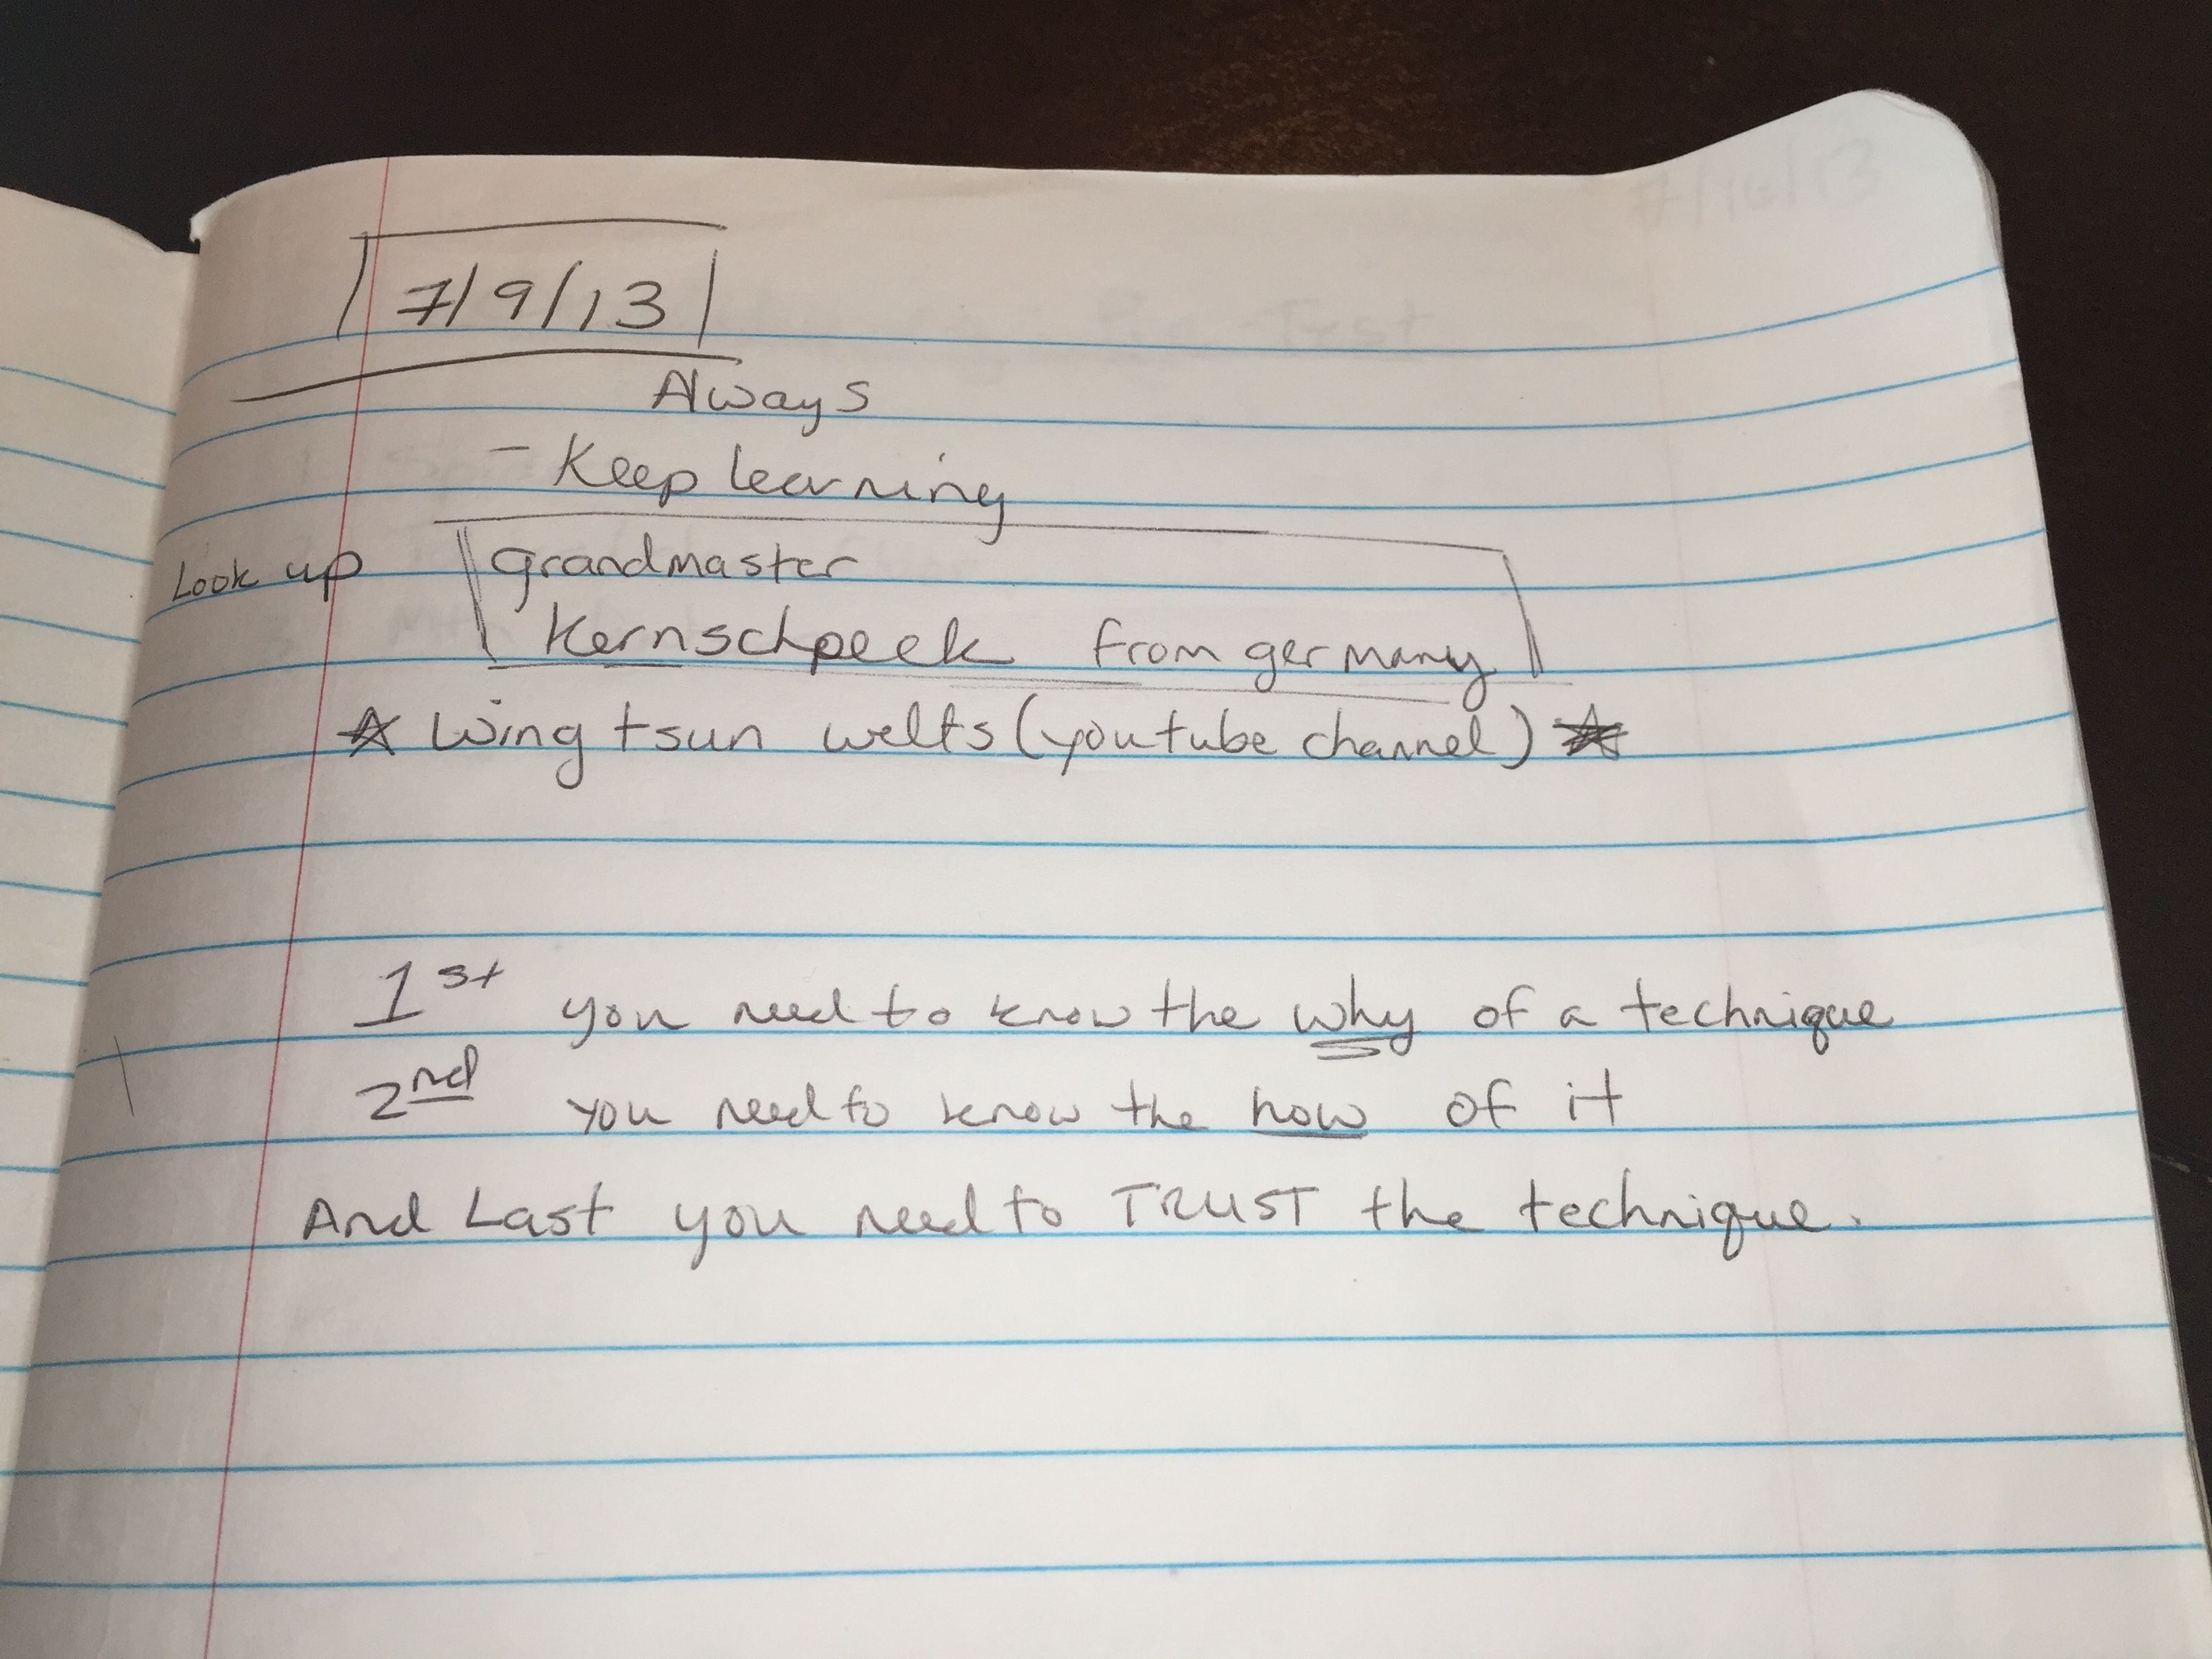 7/9/13
Always
- Keep learning
Look up grandmaster
Kernschpeek from germany
☆ Wing tsun welts (youtube channel) ☆
1st you need to know the why of a technique
2nd you need to know the how of it
And Last you need to TRUST the technique.